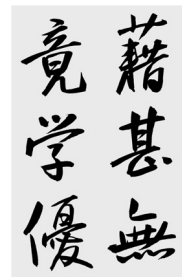 藉甚無
竟学優